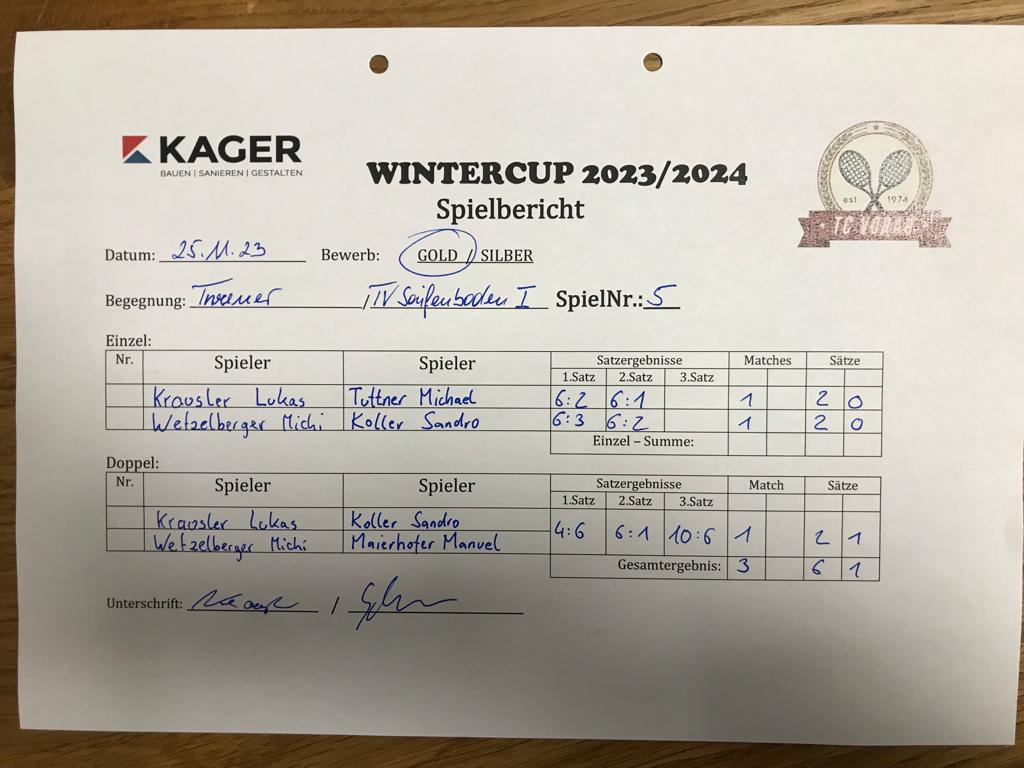 KAGER
BAUEN | SANIEREN | GESTALTEN
WINTERCUP 2023/2024
Spielbericht
est 1974
TC VORAU
Datum: 25.11.23 Bewerb: GOLD / SILBER
Begegnung: / TV Saifenboden I SpielNr.: 5
Einzel:
Nr. Spieler Spieler Satzergebnisse Matches Sätze
1.Satz 2.Satz 3.Satz
Krausler Lukas Tuttner Michael 6:2 6:1 1 2 0
Wetzelberger Michi Koller Sandro 6:3 6:2 1 2 0
Einzel – Summe:
Doppel:
Nr. Spieler Spieler Satzergebnisse Match Sätze
1.Satz 2.Satz 3.Satz
Krausler Lukas Koller Sandro
4:6 6:1 10:6 1 2 1
Wetzelberger Michi Maierhofer Manuel
Gesamtergebnis: 3 6 1
Unterschrift: /